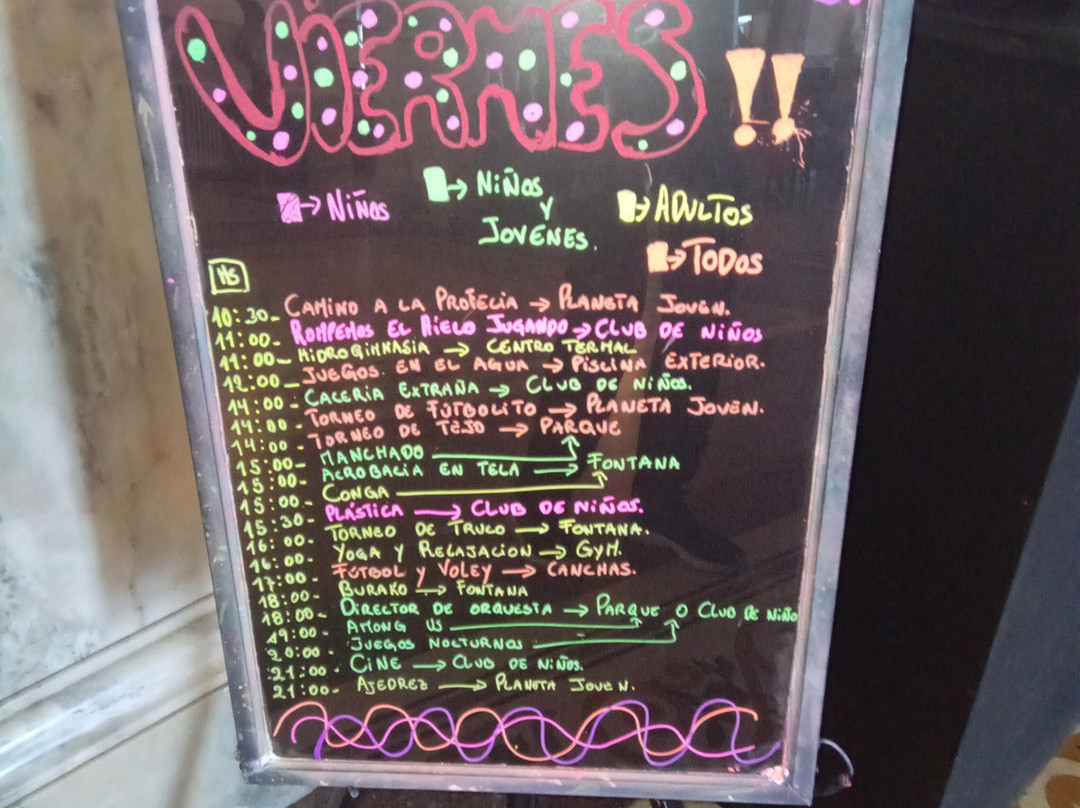 VIERNES !!
→ NIÑOS
→ NIÑOS
Y
JOVENES.
→ ADULTOS
→ TODOS
HS
10:30- CAMINO A LA PROFECIA → PLANETA JOVEN.
11:00- ROMPEMOS EL HIELO JUGANDO → CLUB DE NIÑOS
11:00- HIDROGIMNASIA → CENTRO TERMAL
12:00- JUEGOS EN EL AGUA → PISCINA EXTERIOR.
14:00- CACERIA EXTRAÑA → CLUB DE NIÑOS.
14:00- TORNEO DE FÚTBOLITO → PLANETA JOVEN.
14:00- TORNEO DE TEJO → PARQUE
15:00- MANCHADO
15:00- ACROBACIA EN TELA → FONTANA
15:00- CONGA
15:30- PLÁSTICA → CLUB DE NIÑOS.
16:00- TORNEO DE TRUCO → FONTANA.
16:00- YOGA Y RELAJACION → GYM.
17:00- FÚTBOL Y VOLEY → CANCHAS.
18:00- BURAKO → FONTANA
18:00- DIRECTOR DE ORQUESTA → PARQUE O CLUB DE NIÑO
19:00- AMONG US
20:00- JUEGOS NOCTURNOS
21:00- CINE → CLUB DE NIÑOS.
21:00- AJEDREZ → PLANETA JOVEN.